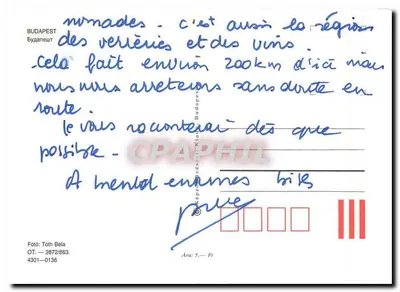 BUDAPEST
Будапешт
nomades. c'est aussi la région
des verreries et des vins.
cela fait environ 200km d'ici mais
nous nous arreterons sans doute en
route.
je vous raconterai dès que
possible.
A bientot enormes bises
CPARPHIL
Képzőművészeti Kiadó Budapest
Foto: Tóth Béla
OT. — 2672/863.
4301—0136
Ára: 5,— Ft